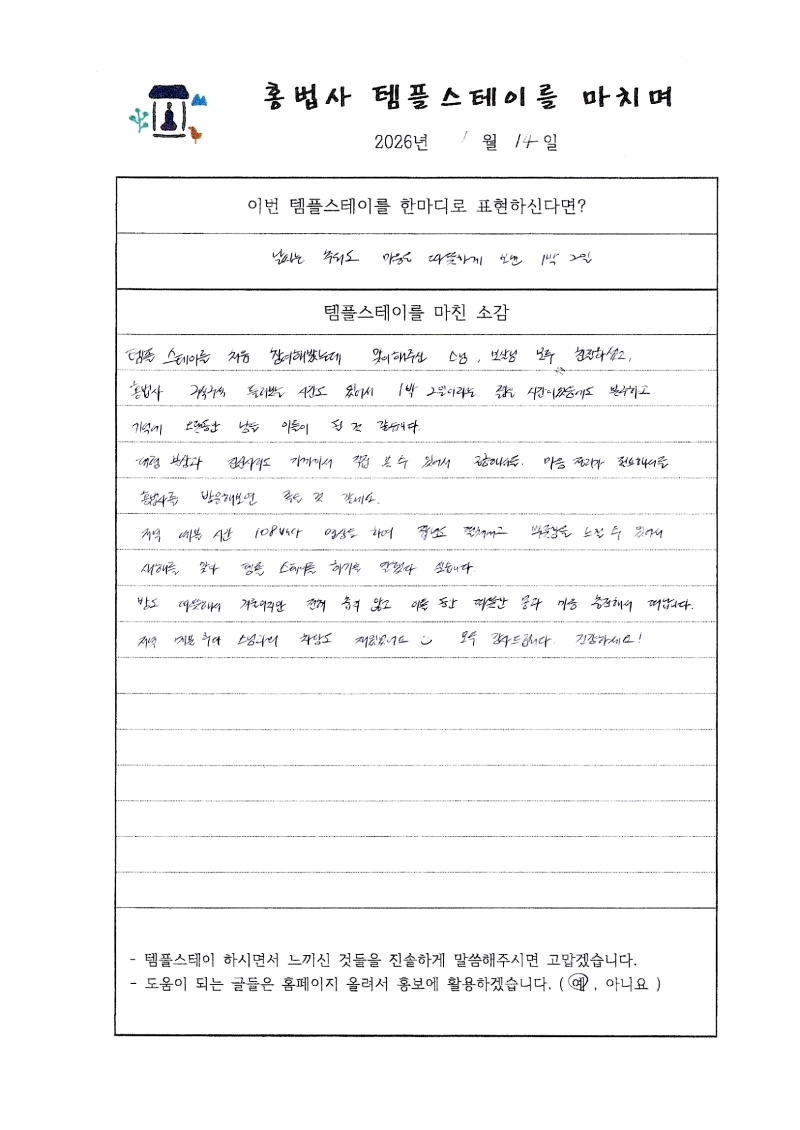 홍법사 템플스테이를 마치며
2026년 1월 14일
이번 템플스테이를 한마디로 표현하신다면?
날씨는 추워도 마음은 따뜻하게 보낸 1박 2일
템플스테이를 마친 소감
템플 스테이를 처음 참여해봤는데 맞이해주신 스님, 보살님 모두 친절하셨고,
홍법사 구석구석 둘러보는 시간도 있어서 1박 2일이라는 짧은 시간이었음에도 불구하고
기억에 오랫동안 남을 이틀이 될 것 같습니다.
대형 불상과 가까이서 직접 볼 수 있어서 마음 정리가 필요해서들
홍법사를 방문해보면 좋을 것 같네요.
저녁 예불 시간 108배와 명상을 하며 잡념도 떨쳐내고 뿌듯함을 느낄 수 있어서
새해를 맞아 템플 스테이를 하기로 잘했다 싶습니다
방도 따뜻해서 겨울이지만 전혀 춥지 않고 이틀 동안 따뜻한 몸과 마음 충전해서 떠납니다.
저녁 예불 후에 스님과의 차담도 재밌었어요 모두 감사드립니다. 건강하세요!
- 템플스테이 하시면서 느끼신 것들을 진솔하게 말씀해주시면 고맙겠습니다.
- 도움이 되는 글들은 홈페이지 올려서 홍보에 활용하겠습니다. ( 예 , 아니요 )